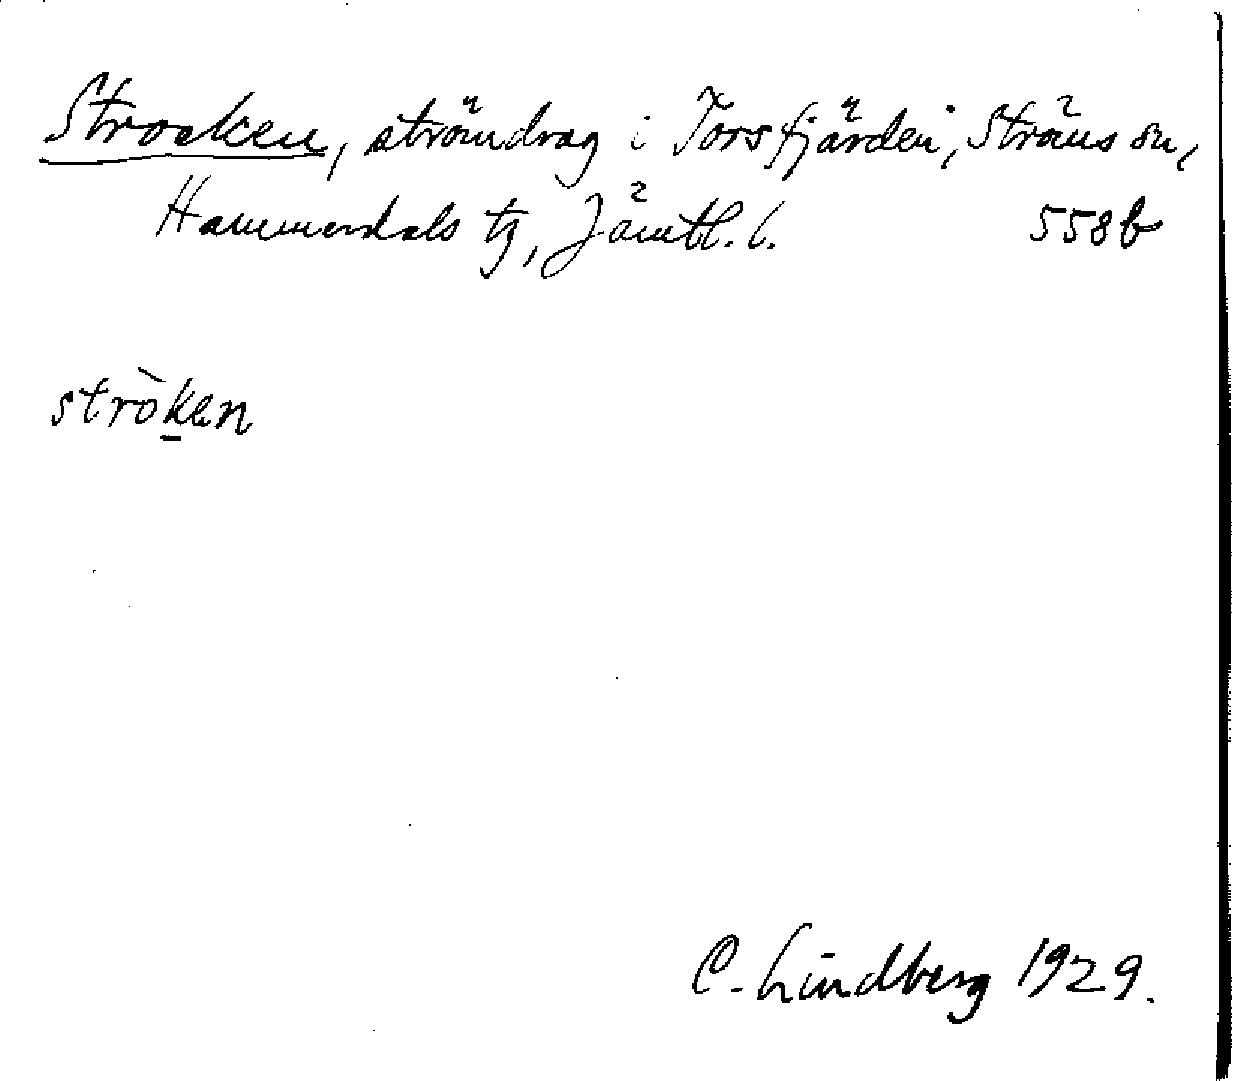 Strocken, strömdrag i Torsfjärden, Ströms sn,
Hammerdals tg, Jämtl. l. 558b
stròken
C. Lindberg 1929.